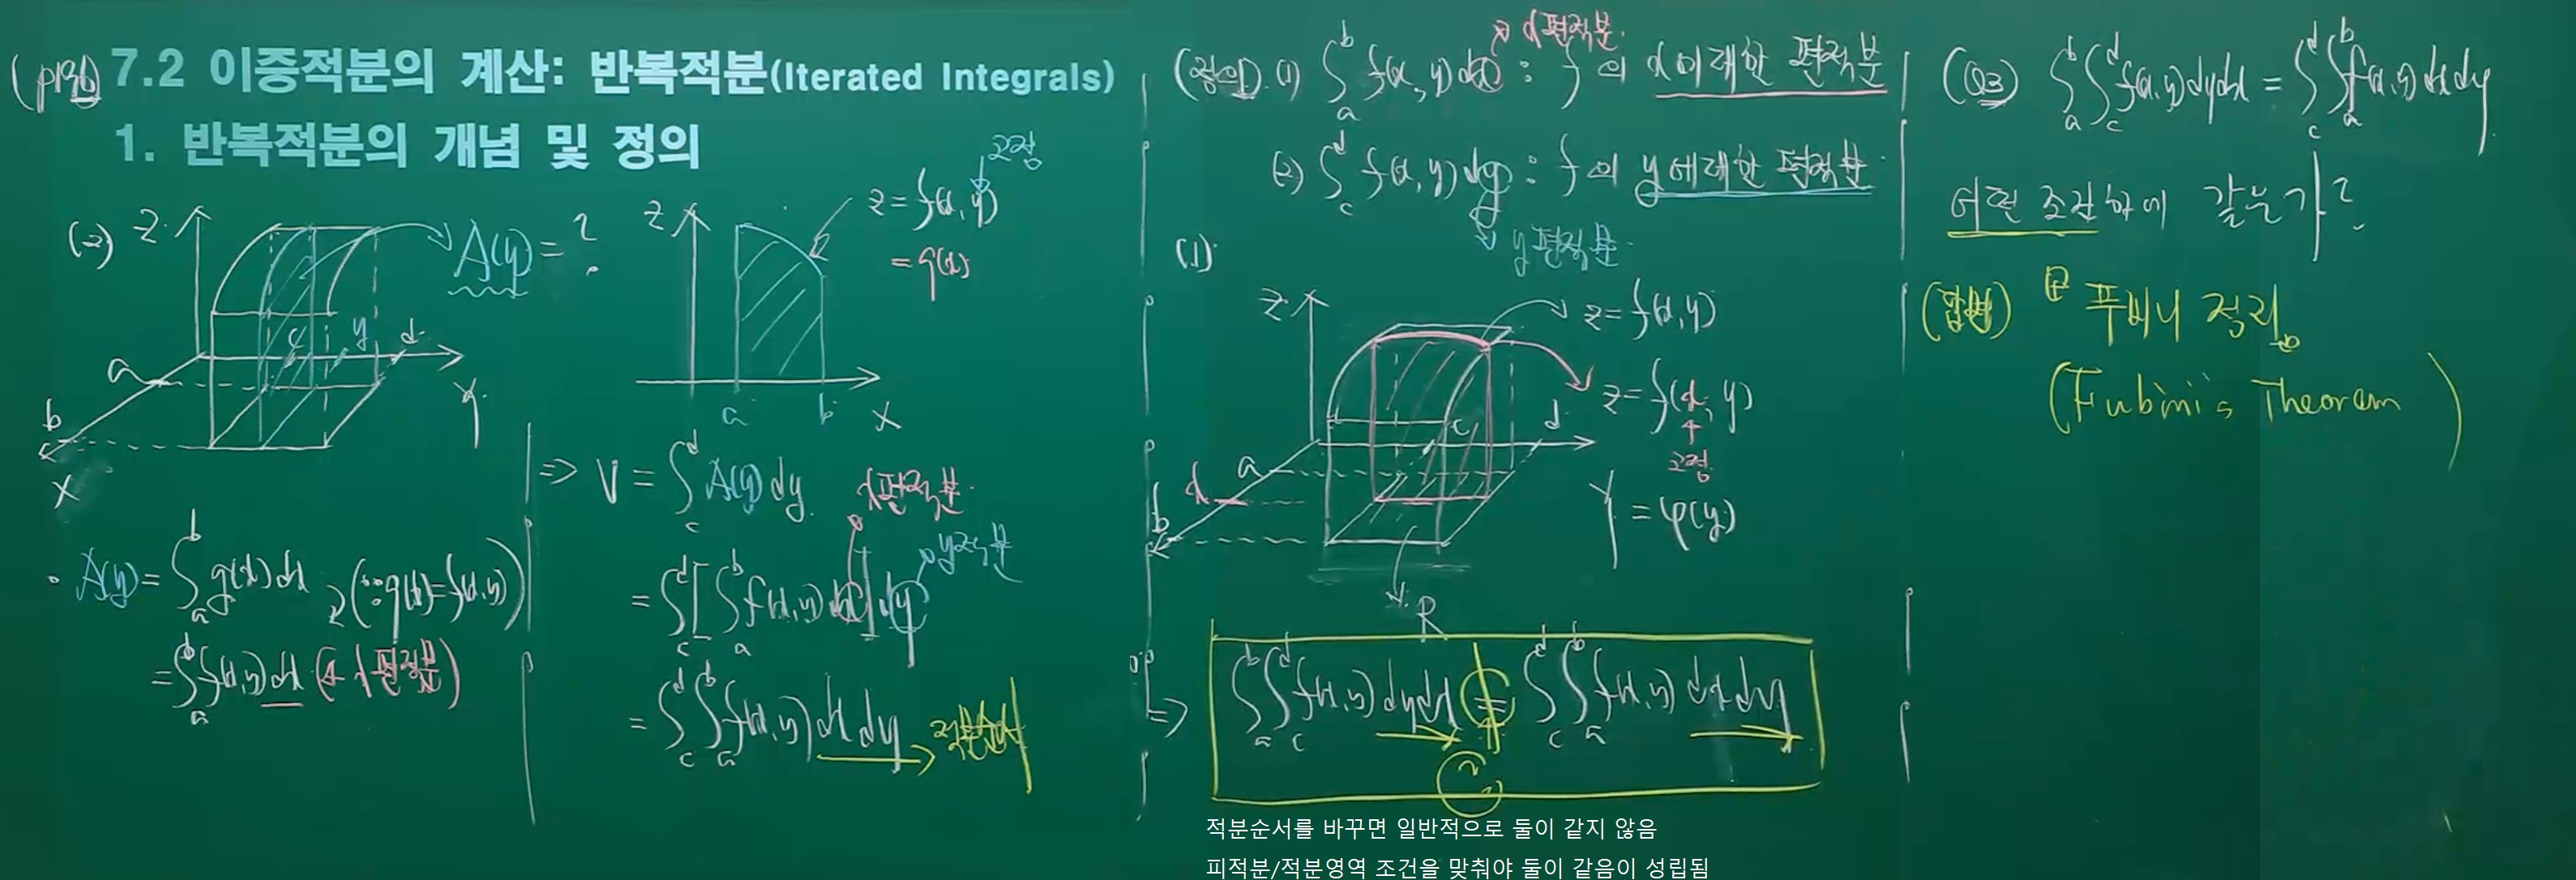 (p196) 7.2 이중적분의 계산: 반복적분(Iterated Integrals)
1. 반복적분의 개념 및 정의
(2) Z
A(y) = ?
a
b
c y d
Y
X
Z
z = f(x, y)
고정
= g(x)
a b X
• A(y) = ∫_a^b g(x) dx (∵ g(x) = f(x, y))
= ∫_a^b f(x, y) dx (← x 편적분)
⇒ V = ∫_c^d A(y) dy
x편적분
= ∫_c^d [∫_a^b f(x, y) dx] dy
y적분
= ∫_c^d ∫_a^b f(x, y) dx dy → 적분순서
(정의1) (1) ∫_a^b f(x, y) dx : f의 x에 대한 편적분
x편적분
(2) ∫_c^d f(x, y) dy : f의 y에 대한 편적분
y편적분
(1)
Z
z = f(x, y)
z = f(x, y)
고정
= φ(y)
a
x
b
c d
Y
R
⇒ ∫_a^b ∫_c^d f(x, y) dy dx = ∫_c^d ∫_a^b f(x, y) dx dy
?
적분순서를 바꾸면 일반적으로 둘이 같지 않음
피적분/적분영역 조건을 맞춰야 둘이 같음이 성립됨
(Q3) ∫_a^b ∫_c^d f(x, y) dy dx = ∫_c^d ∫_a^b f(x, y) dx dy
어떤 조건하에 같는가?
(답변) 푸비니 정리
(Fubini's Theorem)